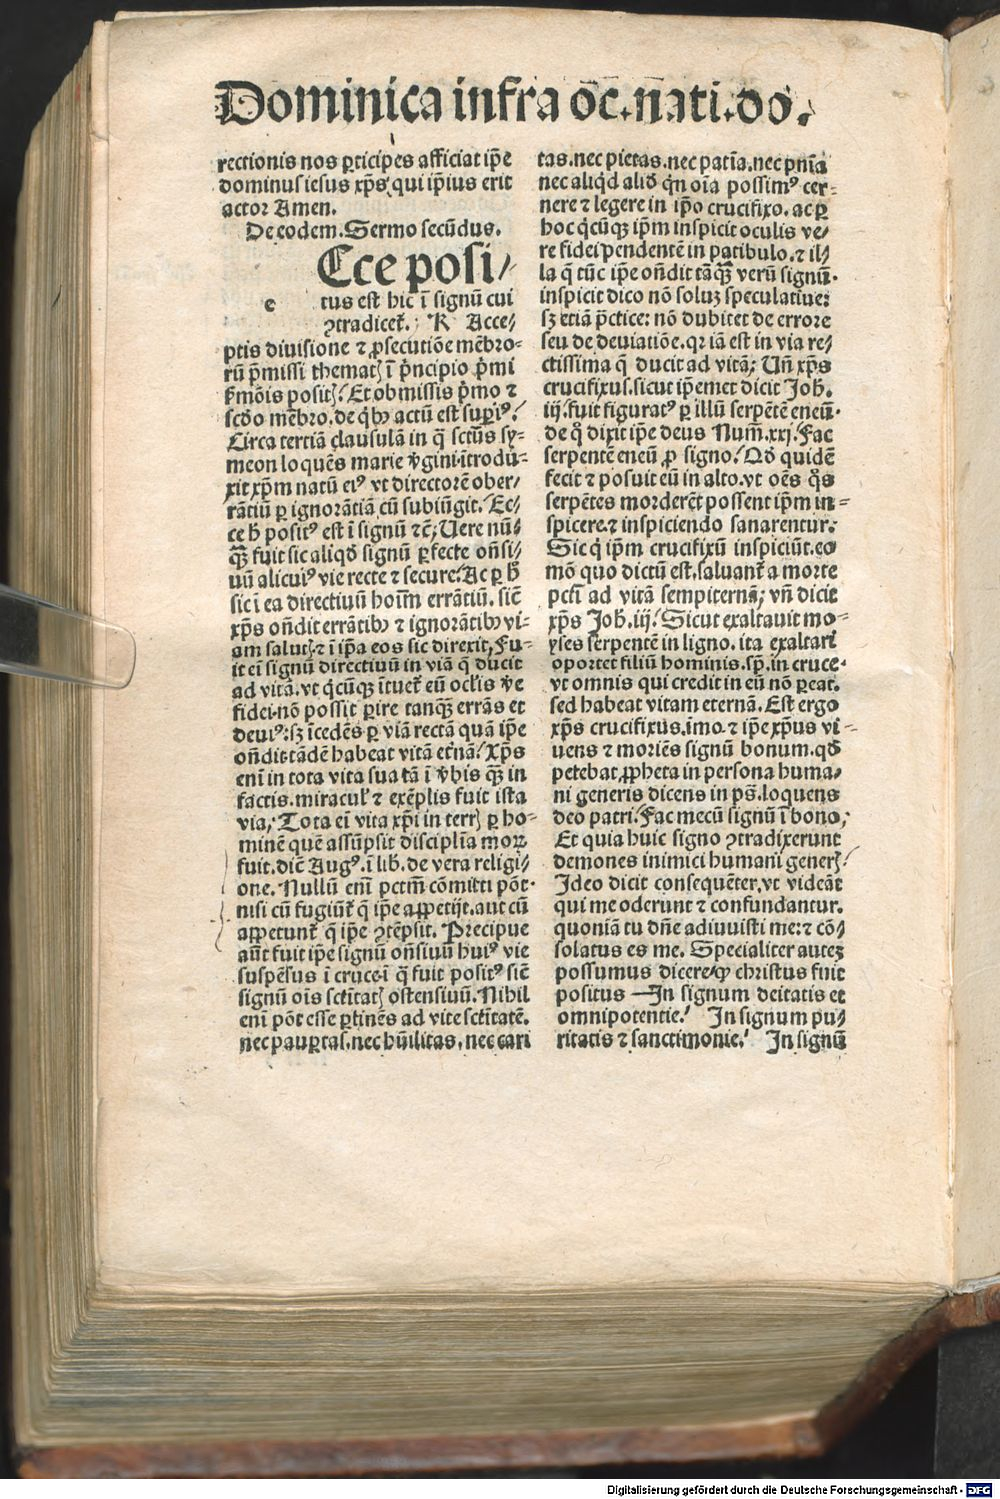 Dominica infra oc̄.nati.do.
rectionis nos ꝑticipes afficiat ip̄e
dominus iesus xp̄s, qui ip̄ius erit
actor Amen.
De eodem. Sermo secūdus.
Ecce posi/
e tus est hic ī signū cui
ꝯtradicet̄. R Acce/
ptis diuisione ⁊ ꝓsecutiōe mēbro-
rū p̄missi themat ī pͥncipio pͥmi
s̄mōis posit. Et obmissis pͥmo ⁊
scd̄o mēbro. de qͥbꝰ actū est supͥꝰ.
Circa tertiā clausulā in q̄ sct̄us sy-
meon loquēs marie v̄gini. ītrodu-
xit xp̄m natū eiꝰ vt directorē ober-
rātiū ꝑ ignorātiā cū subiūgit. Ec-
ce h̄ positꝰ est ī signū ⁊c̄; Uere nū/
qꝫ fuit sic aliqd̄ signū ꝑfecte oñsi/
uū alicuiꝰ vie recte ⁊ secure. Ac ꝑ h̄
sic ī ea directiuū hoīm errātiū. sic̄
xp̄s oñdit errātibꝰ ⁊ ignorātibꝰ vi-
am salut ⁊ ī ip̄a eos sic direxit, Fu-
it ei signū directiuū in viā q̄ ducit
ad vitā. vt qͥcūqꝫ ītuet̄ eū oclis v̄e
fidei. nō possit ꝑire tanqꝫ errās et
deuiꝰ: sꝫ īcedēs ꝑ viā rectā quā ip̄e
oñdit. tādē habeat vitā et̄nā. Xp̄s
enī in tota vita sua tā ī v̄bis qꝫ in
factis. miracul ⁊ exēplis fuit ista
via, Tota ei vita xp̄i in terr ꝑ ho-
minē quē assūpsit disciplīa moꝝ
fuit. dic̄ Augꝰ. ī lib̄. de vera religi/
one. Nullū enī pctm̄ cōmitti pōt.
nisi cū fugiūt̄ q̄ ip̄e appetijt. aut cū
appetunt̄ q̄ ip̄e ꝯtēpsit. Precipue
aūt fuit ip̄e signū oñsiuū huiꝰ vie
suspēsus ī cruce. ī q̄ fuit positꝰ sic̄
signū oīs sctītat ostensiuū. Nihil
enī pōt esse ꝑtinēs ad vite sctītatē.
nec pauꝑtas. nec hūilitas. nec cari
tas. nec pietas. nec patīa. nec pnīa
nec aliqͥd aliud qͥn oīa possimꝰ cer-
nere ⁊ legere in ip̄o crucifixo. ac ꝑ
hoc qͥcūqꝫ ip̄m inspicit oculis ve/
re fidei pendentē in patibulo. ⁊ il/
la q̄ tūc ip̄e oñdit tāqꝫ verū signū.
inspicit dico nō soluꝫ speculatiue:
sꝫ etiā pͣctice: nō dubitet de errore
seu de deuiatiōe. qr iā est in via re/
ctissima q̄ ducit ad vitā; Uñ xp̄s
crucifixus. sicut ip̄emet dicit Joh̄.
iij. fuit figuratꝰ ꝑ illū serpētē eneū.
de qͦ dixit ip̄e deus Num̄. xxj. Fac
serpentē eneū ꝓ signo. Qd̄ quidē
fecit ⁊ posuit eū in alto. vt oēs qͦs
serpētes morderēt possent ip̄m in-
spicere. ⁊ inspiciendo sanarentur.
Sic qͥ ip̄m crucifixū inspiciūt. eo
mō quo dictū est. saluant̄ a morte
pcti ad vitā sempiternā; vñ dicit
xp̄s Joh̄. iij. Sicut exaltauit mo-
yses serpentē in ligno. ita exaltari
oportet filiū hominis. sp̄. in cruce.
vt omnis qui credit in eū nō ꝑeat.
sed habeat vitam eternā. Est ergo
xp̄s crucifixus. imo ⁊ ip̄e xp̄us vi-
uens ⁊ moriēs signū bonum. qd̄
petebat ꝓpheta in persona huma/
ni generis dicens in ps̄. loquens
deo patri. Fac mecū signū ī bono,
Et quia huic signo ꝯtradixerunt
demones inimici humani gener.
Jdeo dicit consequēter, vt videāt
qui me oderunt ⁊ confundantur.
quoniā tu dn̄e adiuuisti me: ⁊ cō/
solatus es me. Specialiter auteꝫ
possumus dicere. ꝙ christus fuit
positus —In signum deitatis et
omnipotentie. In signum pu/
ritatis ⁊ sanctimonie. In signū
Digitalisierung gefördert durch die Deutsche Forschungsgemeinschaft - DFG